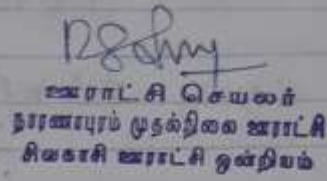 ஊராட்சி செயலர்
நாரணாபுரம் முதல்நிலை ஊராட்சி
சிவகாசி ஊராட்சி ஒன்றியம்